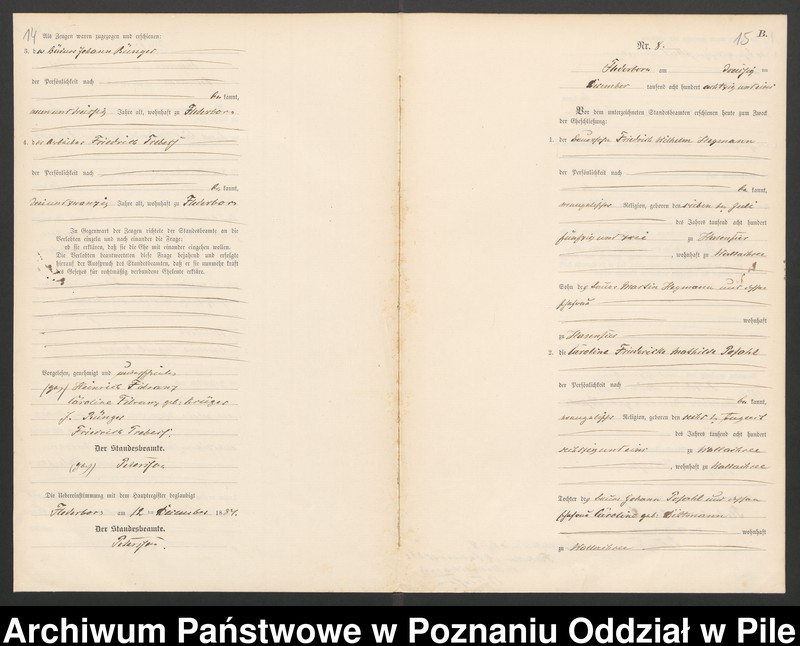 14
Als Zeugen waren zugezogen und erschienen:
3. der Johann Krüger
der Persönlichkeit nach
be kannt,
Jahre alt, wohnhaft zu Flederborn
4. der Friedrich
der Persönlichkeit nach
be kannt,
dreiundzwanzig Jahre alt, wohnhaft zu Flederborn
In Gegenwart der Zeugen richtete der Standesbeamte an die
Verlobten einzeln und nach einander die Frage:
ob sie erklären, daß sie die Ehe mit einander eingehen wollen.
Die Verlobten beantworteten diese Frage bejahend und erfolgte
hierauf der Ausspruch des Standesbeamten, daß er sie nunmehr kraft
des Gesetzes für rechtmäßig verbundene Eheleute erkläre.
Vorgelesen, genehmigt und unterschrieben
(gez) Heinrich
Caroline geb. Krüger
J. Krüger
Friedrich
Der Standesbeamte.
(gez)
Die Uebereinstimmung mit dem Hauptregister beglaubigt
Flederborn am 12 ten Dezember 1884.
Der Standesbeamte.
15
B.
Nr. 8.
Flederborn am dreißig ten
Dezember tausend acht hundert achtzig und eins
Vor dem unterzeichneten Standesbeamten erschienen heute zum Zweck
der Eheschließung:
1. der Friedrich Wilhelm Hegmann
der Persönlichkeit nach
be kannt,
evangelischer Religion, geboren den sieben ten Juli
des Jahres tausend acht hundert
fünfzig und zwei zu
, wohnhaft zu Wallachsee
Sohn des Bauer Martin Hegmann und dessen
Ehefrau
wohnhaft
zu
2. die Caroline Friedericke Mathilde Posahl
der Persönlichkeit nach
be kannt,
evangelischer Religion, geboren den sechs ten August
des Jahres tausend acht hundert
sechszig und eins zu Wallachsee
, wohnhaft zu Wallachsee
Tochter des Bauer Johann Posahl und dessen
Ehefrau Caroline geb. Dittmann
wohnhaft
zu Wallachsee
Archiwum Państwowe w Poznaniu Oddział w Pile